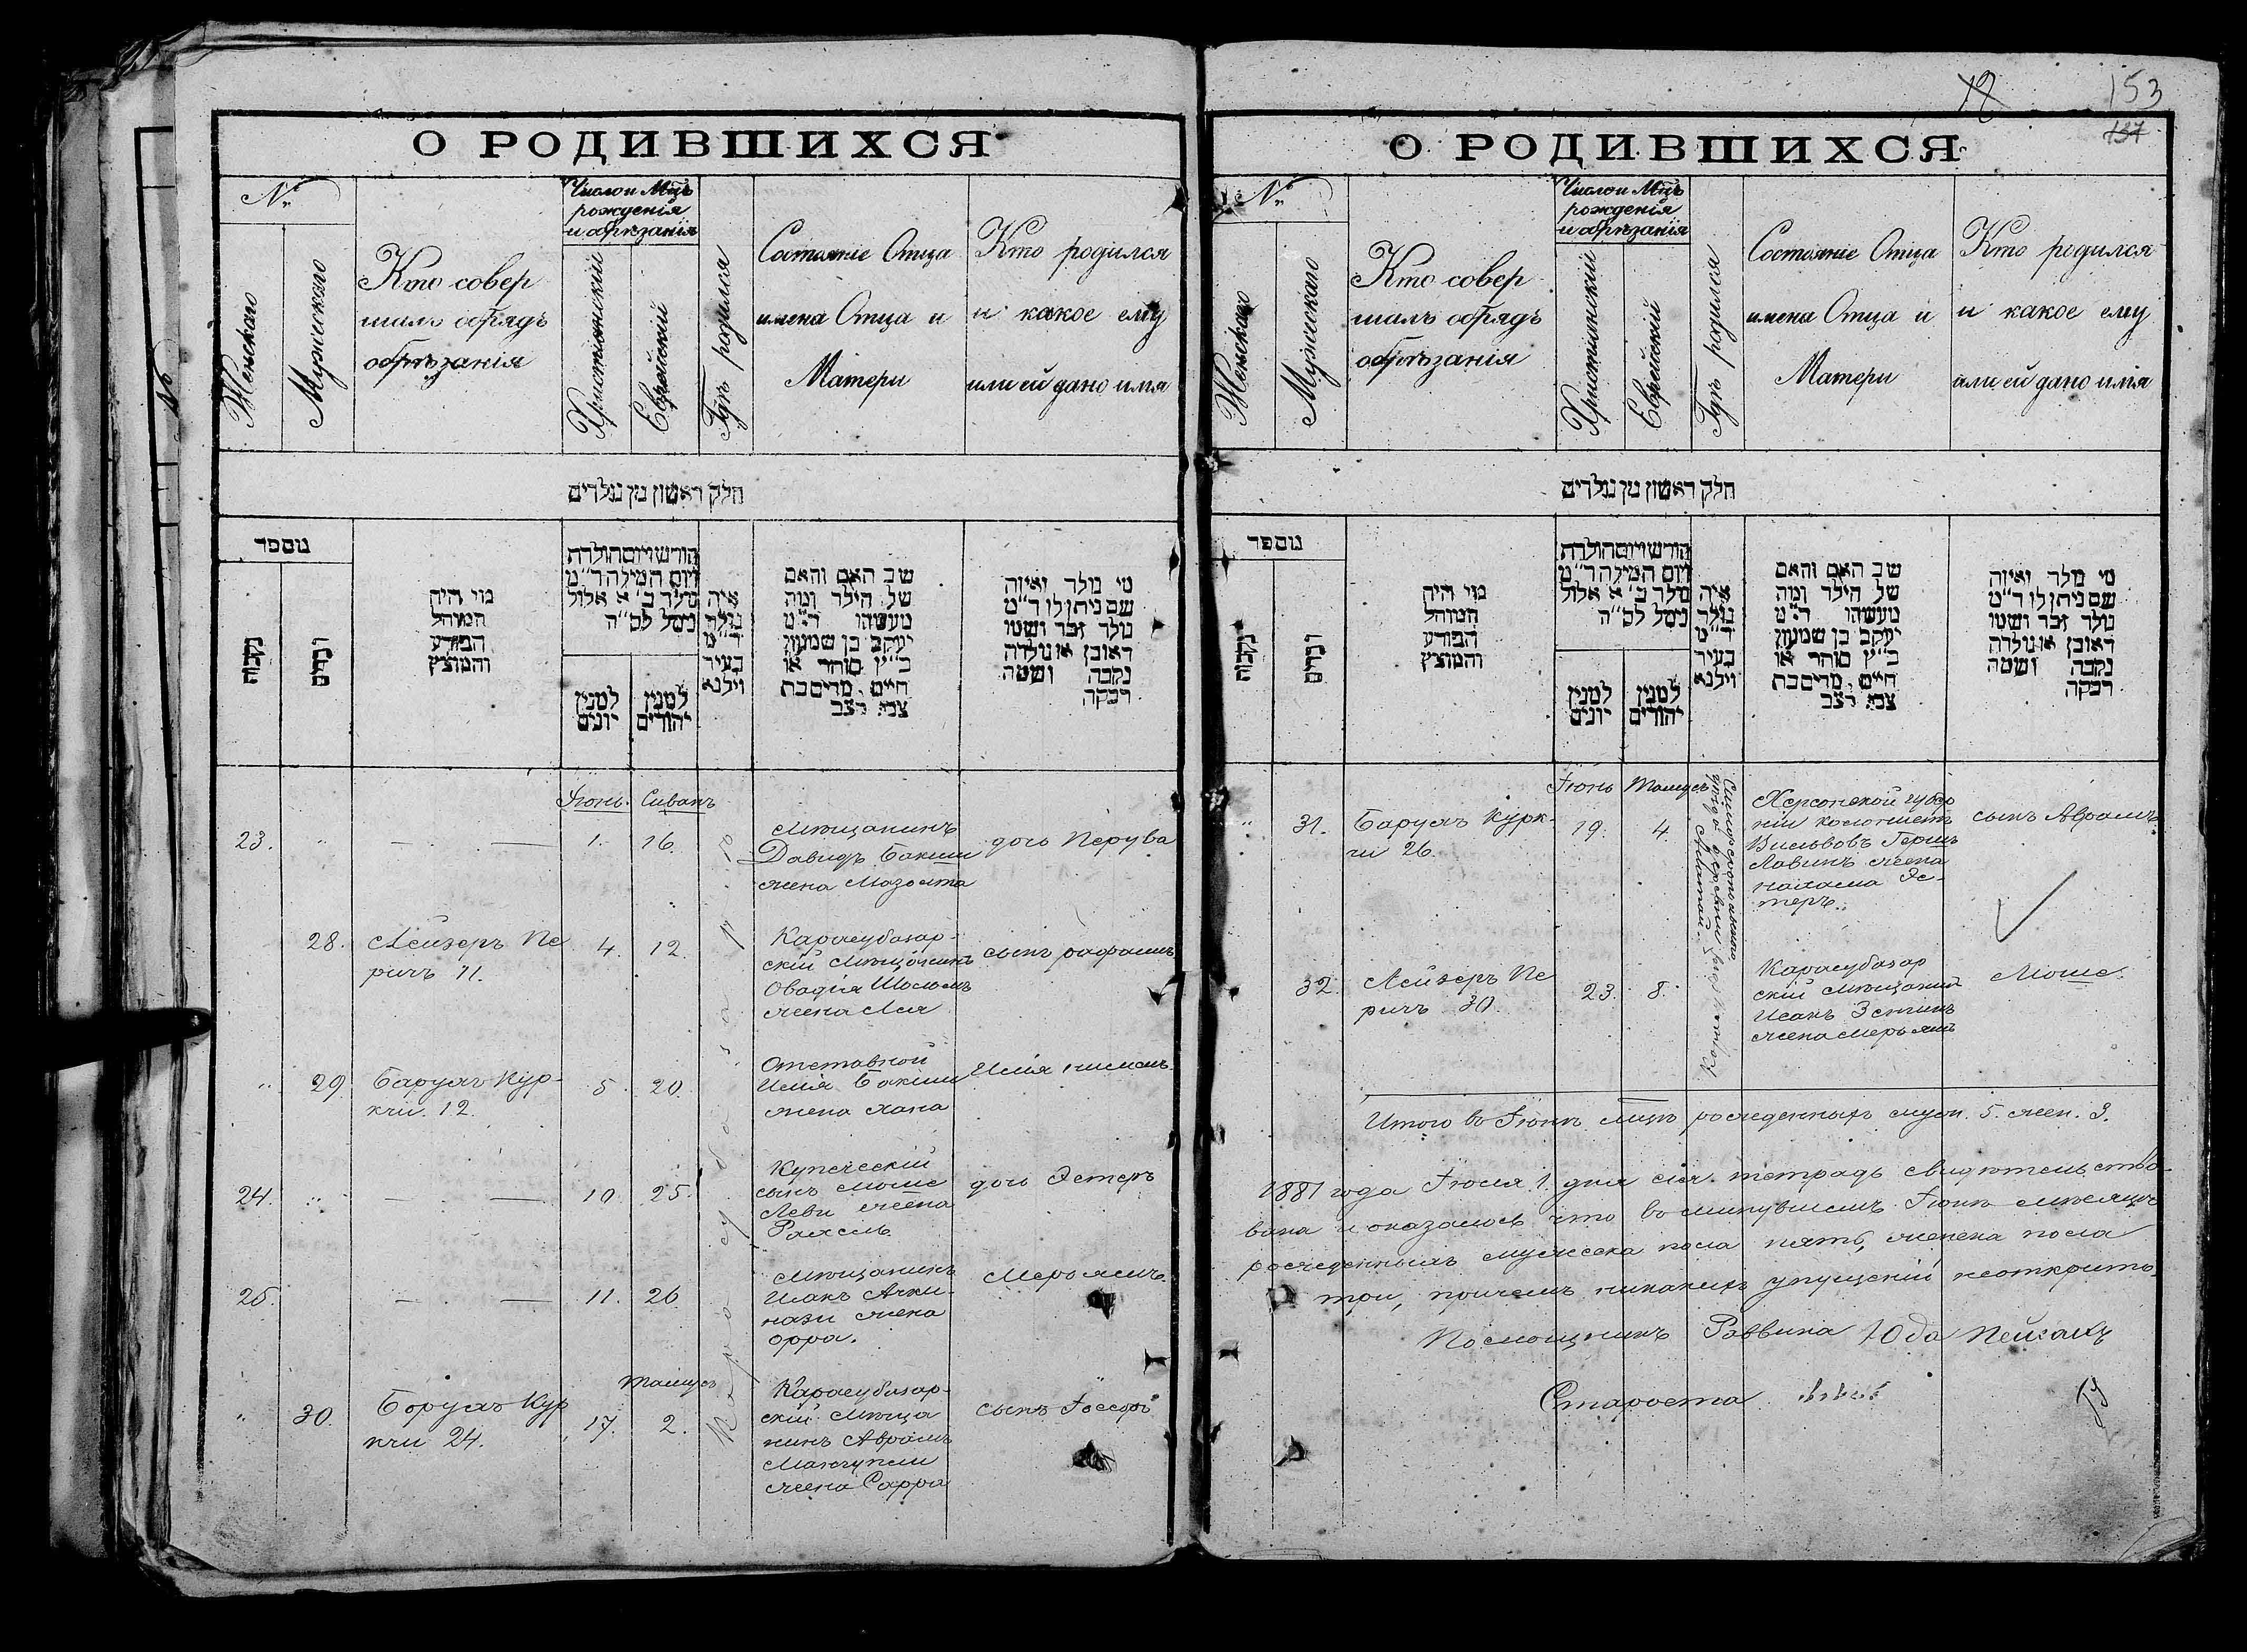 О РОДИВШИХСЯ
№
Женскаго
Мужскаго
Кто совер
шалъ обрядъ
обрѣзанія
Число и Мцъ
рожденія
и обрѣзанія
Христіянскій
Еврейскій
Гдѣ родился
Состояніе Отца
имена Отца и
Матери
Кто родился
и какое ему
или ей дано имя
חלק ראשון מן נולדים
מספר
נקבות
זכרים
מי היה
המוהל
הפורע
והמוצץ
חודש ויום הולדת
ויום המילה ד"מ
נולד ב' א אלול
נימל לס"ה
למנין
יונים
למנין
יהודים
איה
נולד
ד"מ
בעיר
וילנא
שם האב והאם
של הילד ומה
מעשהו ד"מ
יעקב בן שמעון
כ"ץ סוחר או
חייט, מרים בת
צבי קצב
מי נולד ואיזה
שם ניתן לו ד"מ
נולד זכר ושמו
ראובן או נולדה
נקבה ושמה
רבקה
Іюнь. Сиванъ
23. " — — 1. 16. Мѣщанинъ
Давидъ Бакши
жена Мазолта
дочь Перува
28. Лейзеръ Пе
ричъ 11.
4. 12. Карасубазар-
скій Мѣщанинъ
Овадія Шоломъ
жена Лея
сынъ рафаилъ
" 29. Барухъ Кур-
кчи. 12.
5. 20. Отставной
Илія Бакши
жена хана
Илія
24. " — — 10. 25. Купеческій
сынъ Моше
Леви жена
Рахель
дочь Эстеръ
25. — — 11. 26 Мѣщанинъ
Исакъ Ачки-
нази жена
Мерьямъ.
Тамузъ
" 30. Борухъ Кур
кчи 24.
17. 2. Карасубазар-
скій Мѣща
нинъ Аврамъ
Мангупли
жена Сарра
сынъ Іосефъ
Карасубазаръ
О РОДИВШИХСЯ
12
153
137
№
Женскаго
Мужскаго
Кто совер
шалъ обрядъ
обрѣзанія
Число и Мцъ
рожденія
и обрѣзанія
Христіянскій
Еврейскій
Гдѣ родился
Состояніе Отца
имена Отца и
Матери
Кто родился
и какое ему
или ей дано имя
חלק ראשון מן נולדים
מספר
נקבות
זכרים
מי היה
המוהל
הפורע
והמוצץ
חודש ויום הולדת
ויום המילה ד"מ
נולד ב' א אלול
נימל לס"ה
למנין
יונים
למנין
יהודים
איה
נולד
ד"מ
בעיר
וילנא
שם האב והאם
של הילד ומה
מעשהו ד"מ
יעקב בן שמעון
כ"ץ סוחר או
חייט, מרים בת
צבי קצב
מי נולד ואיזה
שם ניתן לו ד"מ
נולד זכר ושמו
ראובן או נולדה
נקבה ושמה
רבקה
Іюнь Тамузъ
" 31. Барухъ Курк-
чи 26.
19. 4. Симферопольскаго
уѣзда деревни
Херсонской губер
ніи колонистъ
Гершъ
Лавинъ жена
нахама Эс-
теръ.
сынъ Аврамъ.
32. Лейзеръ Пе
ричъ 30.
23. 8. Карасубазар
скій Мѣщанин
Исакъ
жена Мерьямъ
Моше.
Итого въ Іюнѣ мцѣ рожденныхъ муж. 5. жен. 3.
1881 года Іюля 1. дня сія тетрадь свидѣтельство-
вана и оказалось что въ минувшемъ Іюнѣ мѣсяцѣ
рожденныхъ мужеска пола пять, женска пола
три, причемъ никакихъ упущеній неоткрыто.
Помощникъ Раввина Юда Пейсахъ
Староста